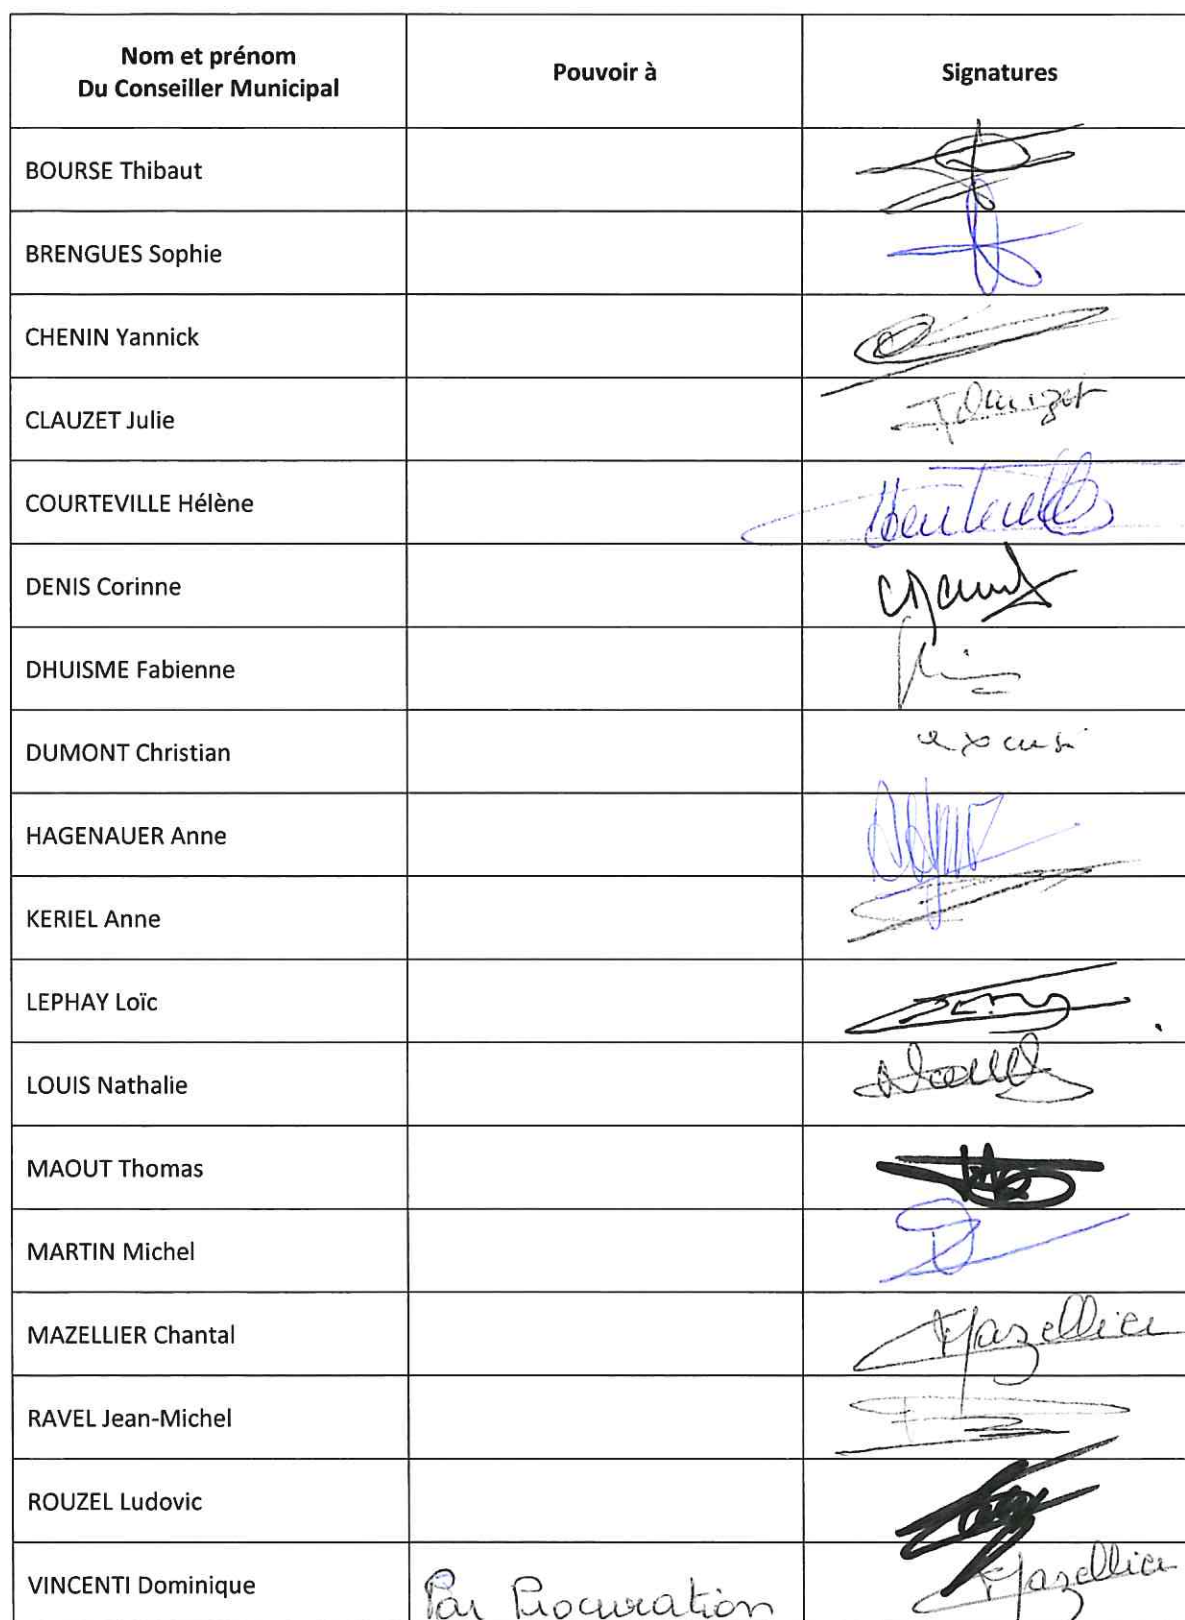 Nom et prénom
Du Conseiller Municipal
Pouvoir à
Signatures
BOURSE Thibaut
BRENGUES Sophie
CHENIN Yannick
CLAUZET Julie
COURTEVILLE Hélène
DENIS Corinne
DHUISME Fabienne
DUMONT Christian excusé
HAGENAUER Anne
KERIEL Anne
LEPHAY Loïc
LOUIS Nathalie
MAOUT Thomas
MARTIN Michel
MAZELLIER Chantal Mazellier
RAVEL Jean-Michel
ROUZEL Ludovic
VINCENTI Dominique Par Procuration Mazellier